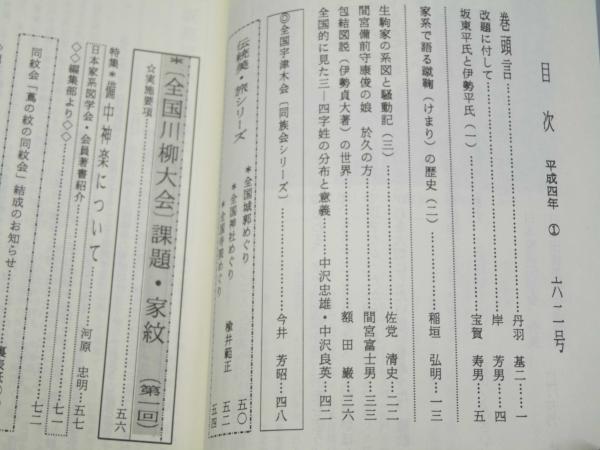 目次　平成四年　①　六二号
巻頭言……丹羽　基二……一
改題に付して……岸　芳男……四
坂東平氏と伊勢平氏（一）……宝賀　寿男……五
家系で語る蹴鞠（けまり）の歴史（二）……稲垣　弘明……一三
生駒家の系図と騒動記（三）……佐党　清史……二二
間宮備前守康俊の娘　於久の方……間宮富士男……三三
包結図説（伊勢貞大著）の世界……額田　巌……三六
全国的に見た三―四字姓の分布と意義……中沢忠雄・中沢良英……四二
◎全国宇津木会〔同族会シリーズ〕……今井　芳昭……四八
伝統美・旅シリーズ
＊全国城郭めぐり……五〇
＊全国神社めぐり　楡井範正……五二
＊全国寺院めぐり……五四
＊〔全国川柳大会〕課題・家紋（第一回）
☆実施要項……五六
特集＊備中神楽について……河原　忠明……五七
日本家系図学会・会員著書紹介……七一
◇◇編集部より◇◇……七二
同紋会「蔦の紋の同紋会」結成のお知らせ……裏表紙